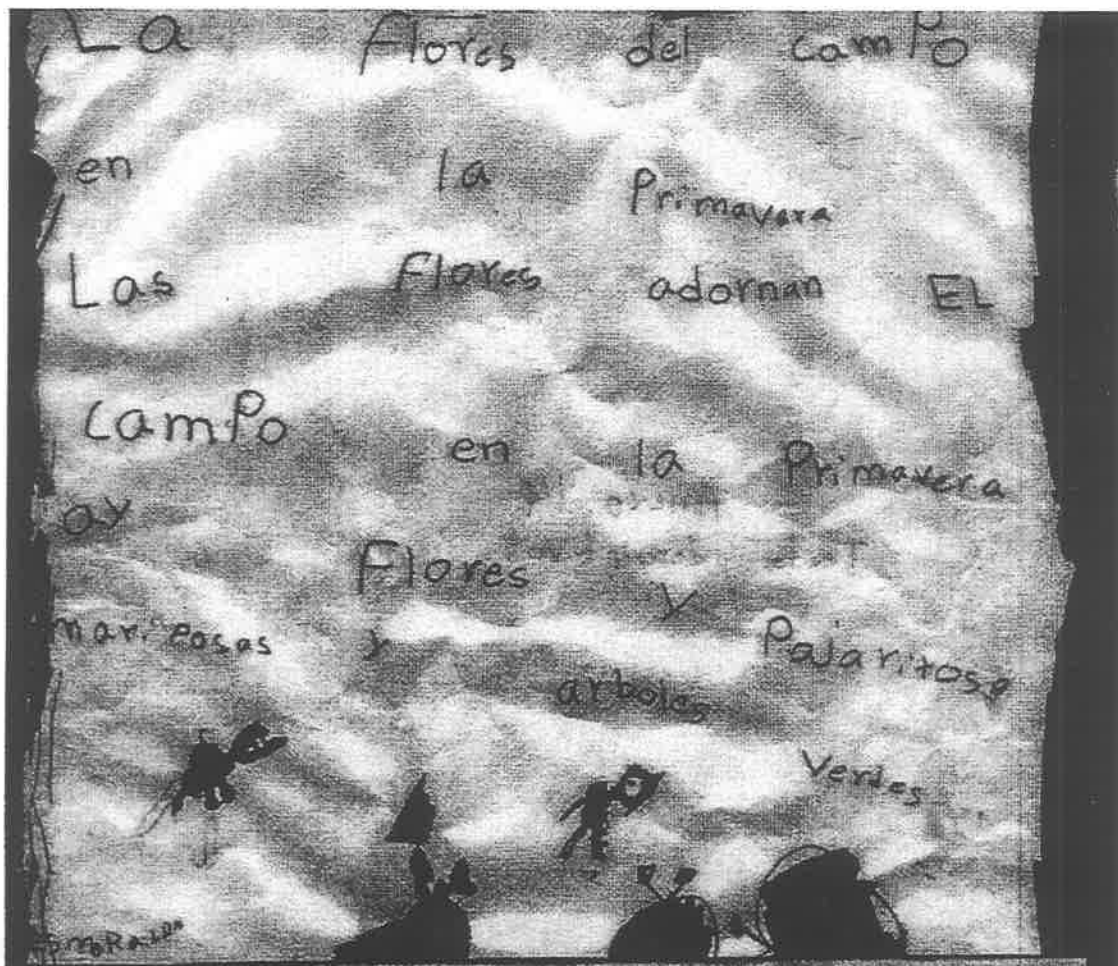 La flores del campo
en la Primavera
Las flores adornan EL
campo en la Primavera
ay Flores y Pajaritos
mariposas y arboles
Verdes